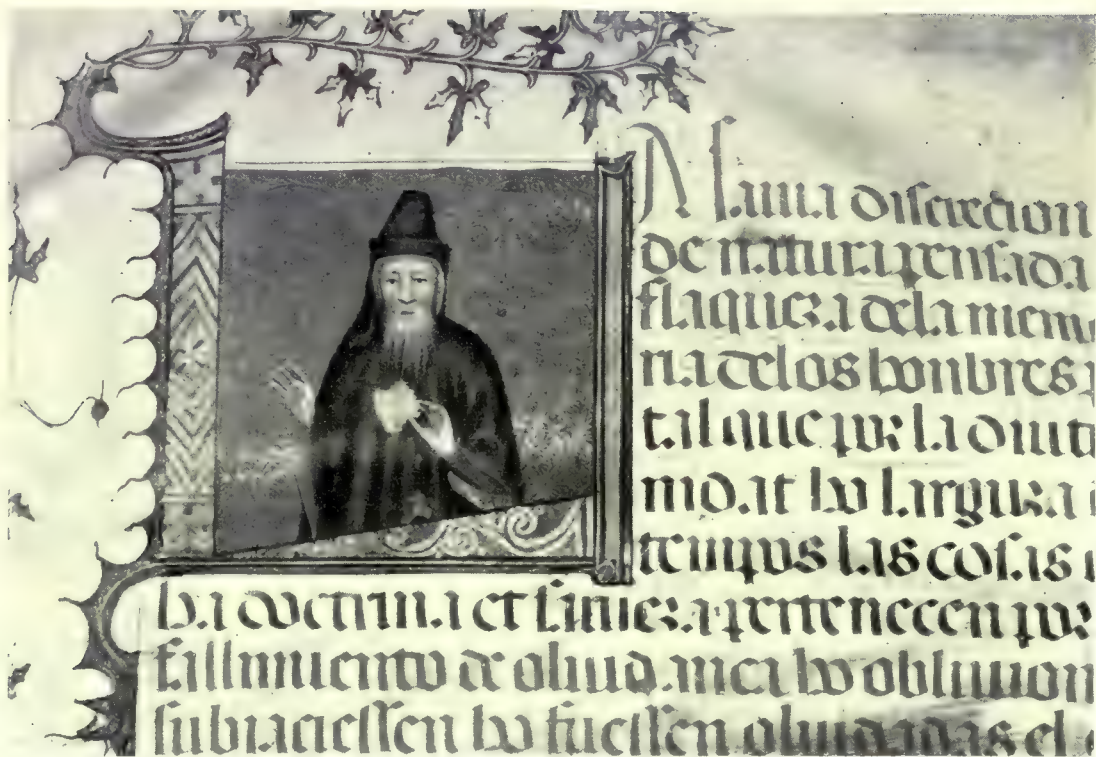 N Sauia discrecion
de natura pensada
flaqueza dela memo
ria delos honbres
tal que por la diut
mdat ho largura
tempos las cosas
ha doctrina et simez pertenecen por
fallimiento de oluidança ho obliuion
subiaciessen ho fuessen oluidadas el